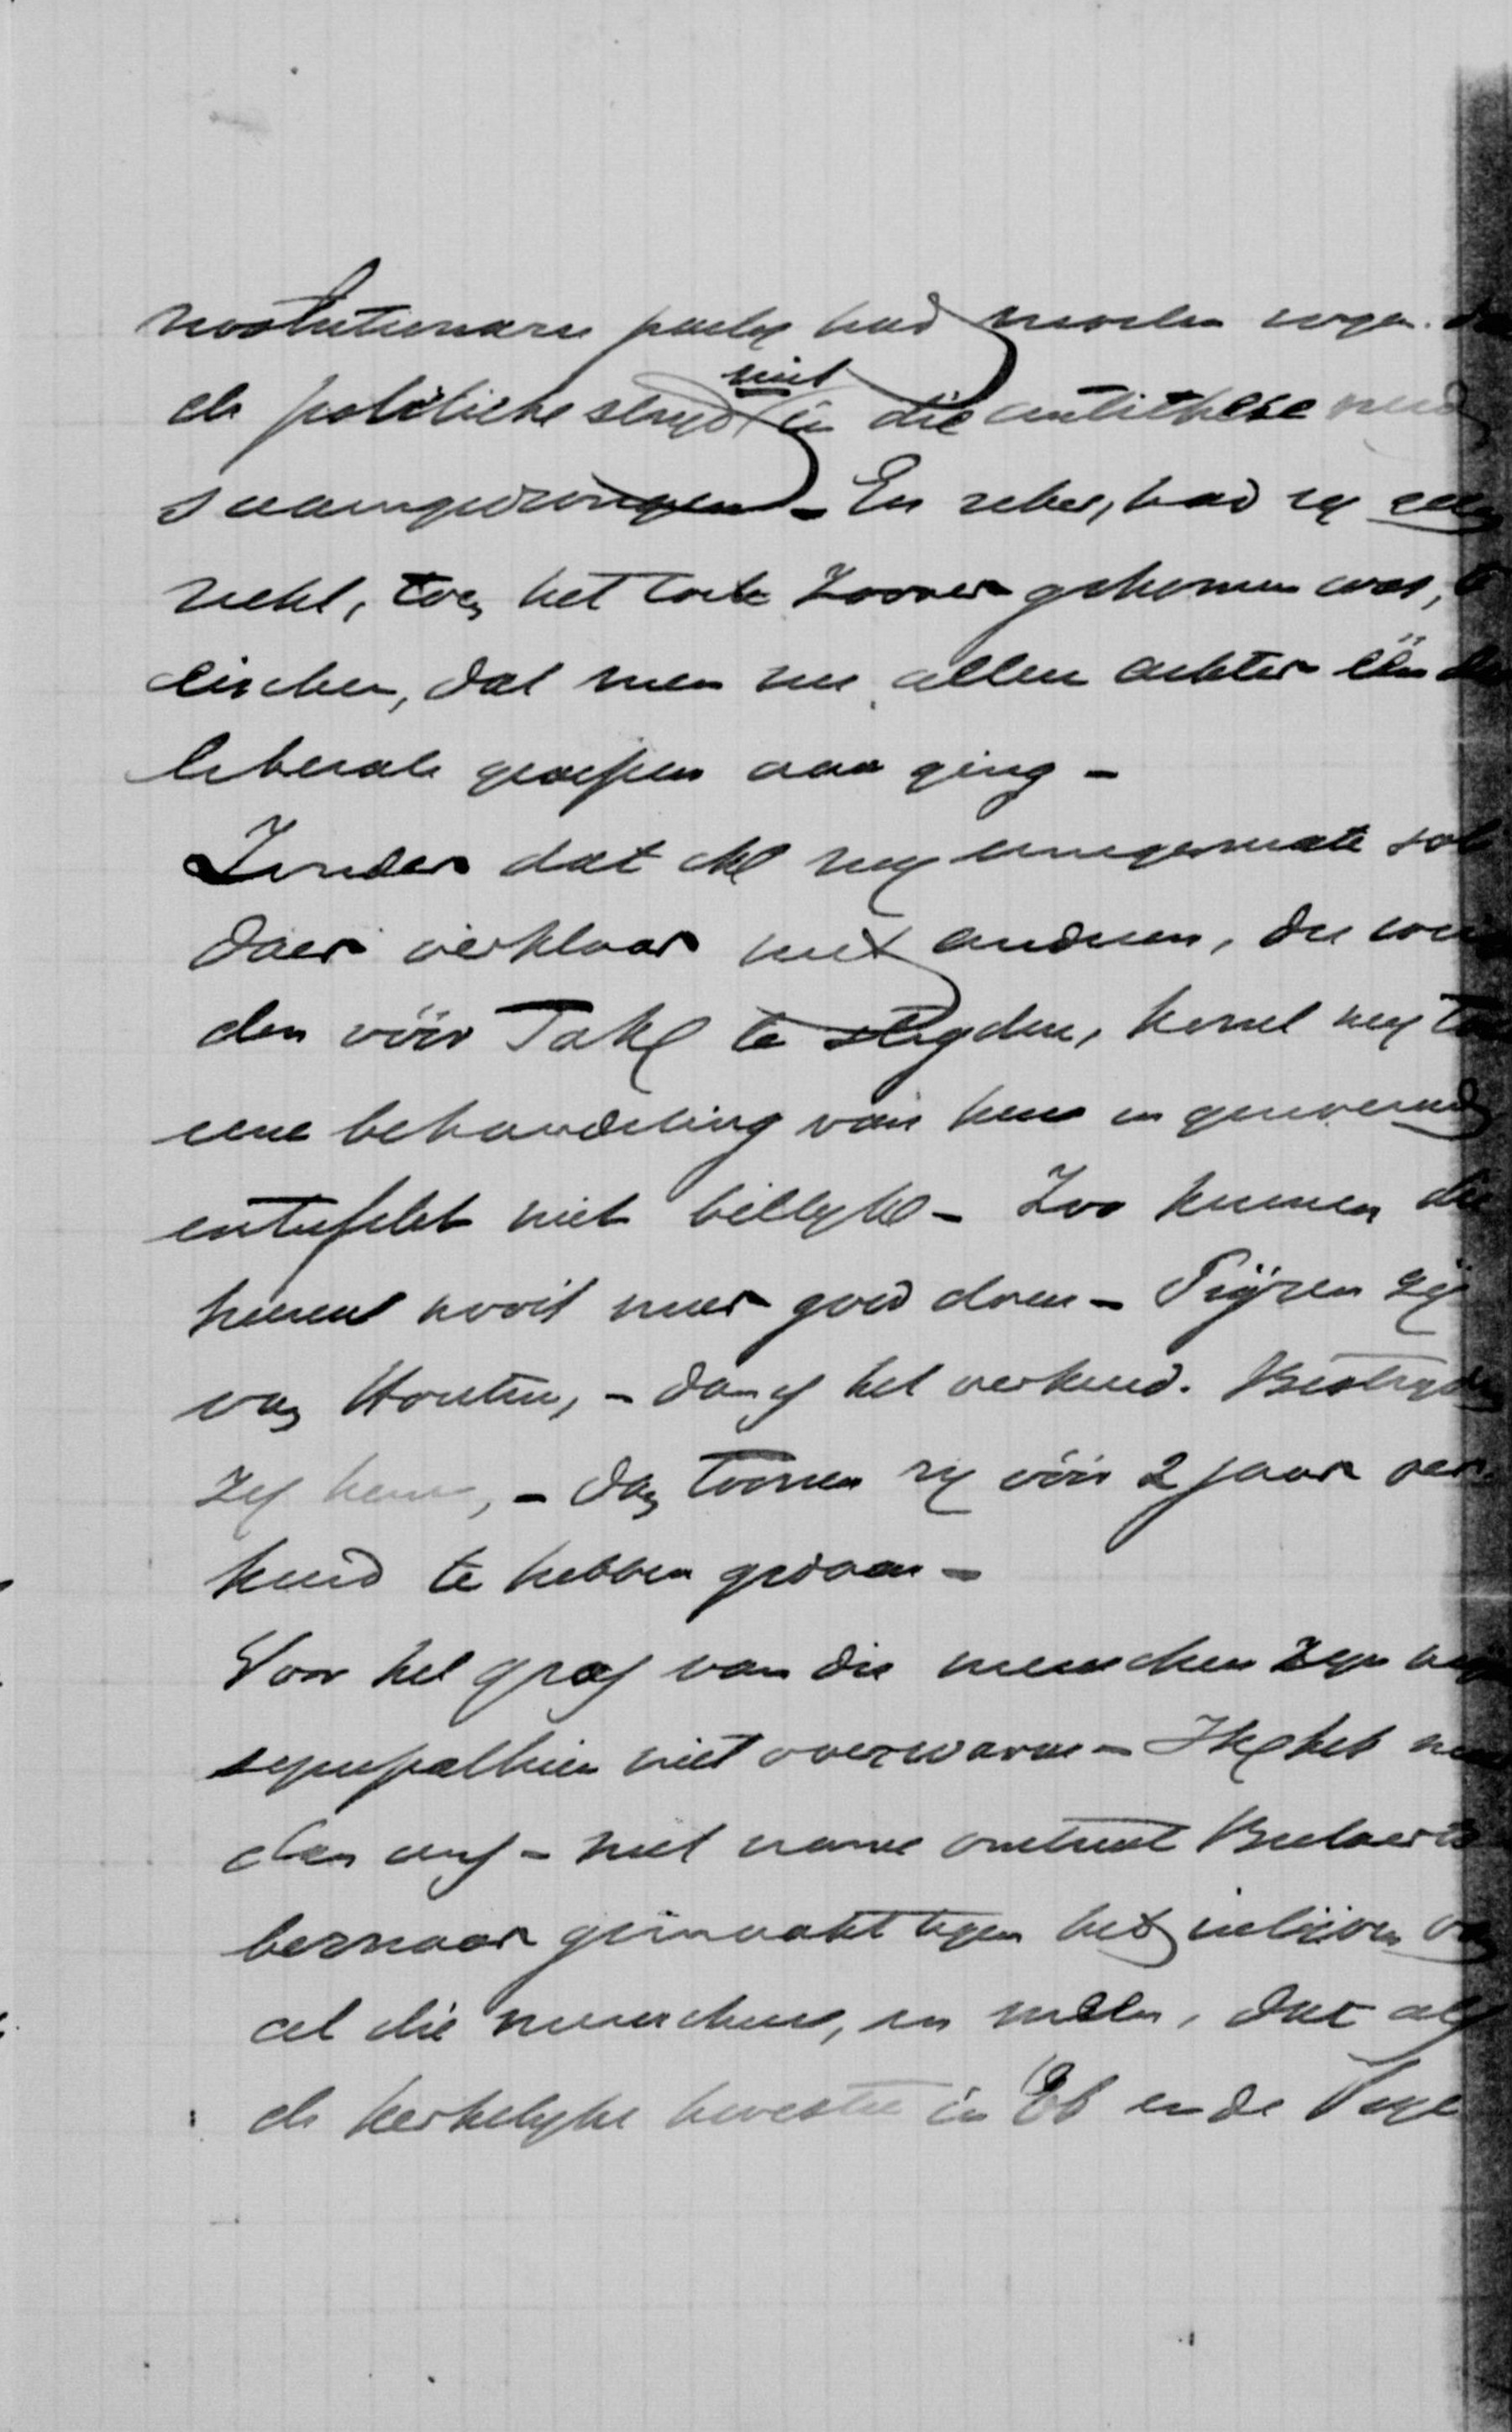 revolutionaire partij had moeten zorgen. da
de politieke strijd niet in die antithese werd
saamgedrongen – En zeker, had zij geen
recht, toen het toch zoover gekomen was, te
eischen, dat men nu allen achter één der
liberale groepen aan ging –
Zonder dat ik mij eenigermate soli
dair verklaar met anderen, die wei
den vóór Tak te strijden, komt mij toch
eene behandeling van hen in
niet billijk – Zoo kunnen die
heeren nooit meer goed doen – Prijzen zij
van Houten, – dan is het verkeerd. Bestrijden
zij hem, – dan toonen zij vóór 2 jaar ver
keerd te hebben gedaan –
Voor het gros van die menschen zijn mijn
sympathiën niet overwarm – Ik heb
dan ook – met name omtrent Beelaerts
bezwaar gemaakt tegen het van
al die menschen, en meen, dat als
de kerkelijke kwestie in Eb en de Savo